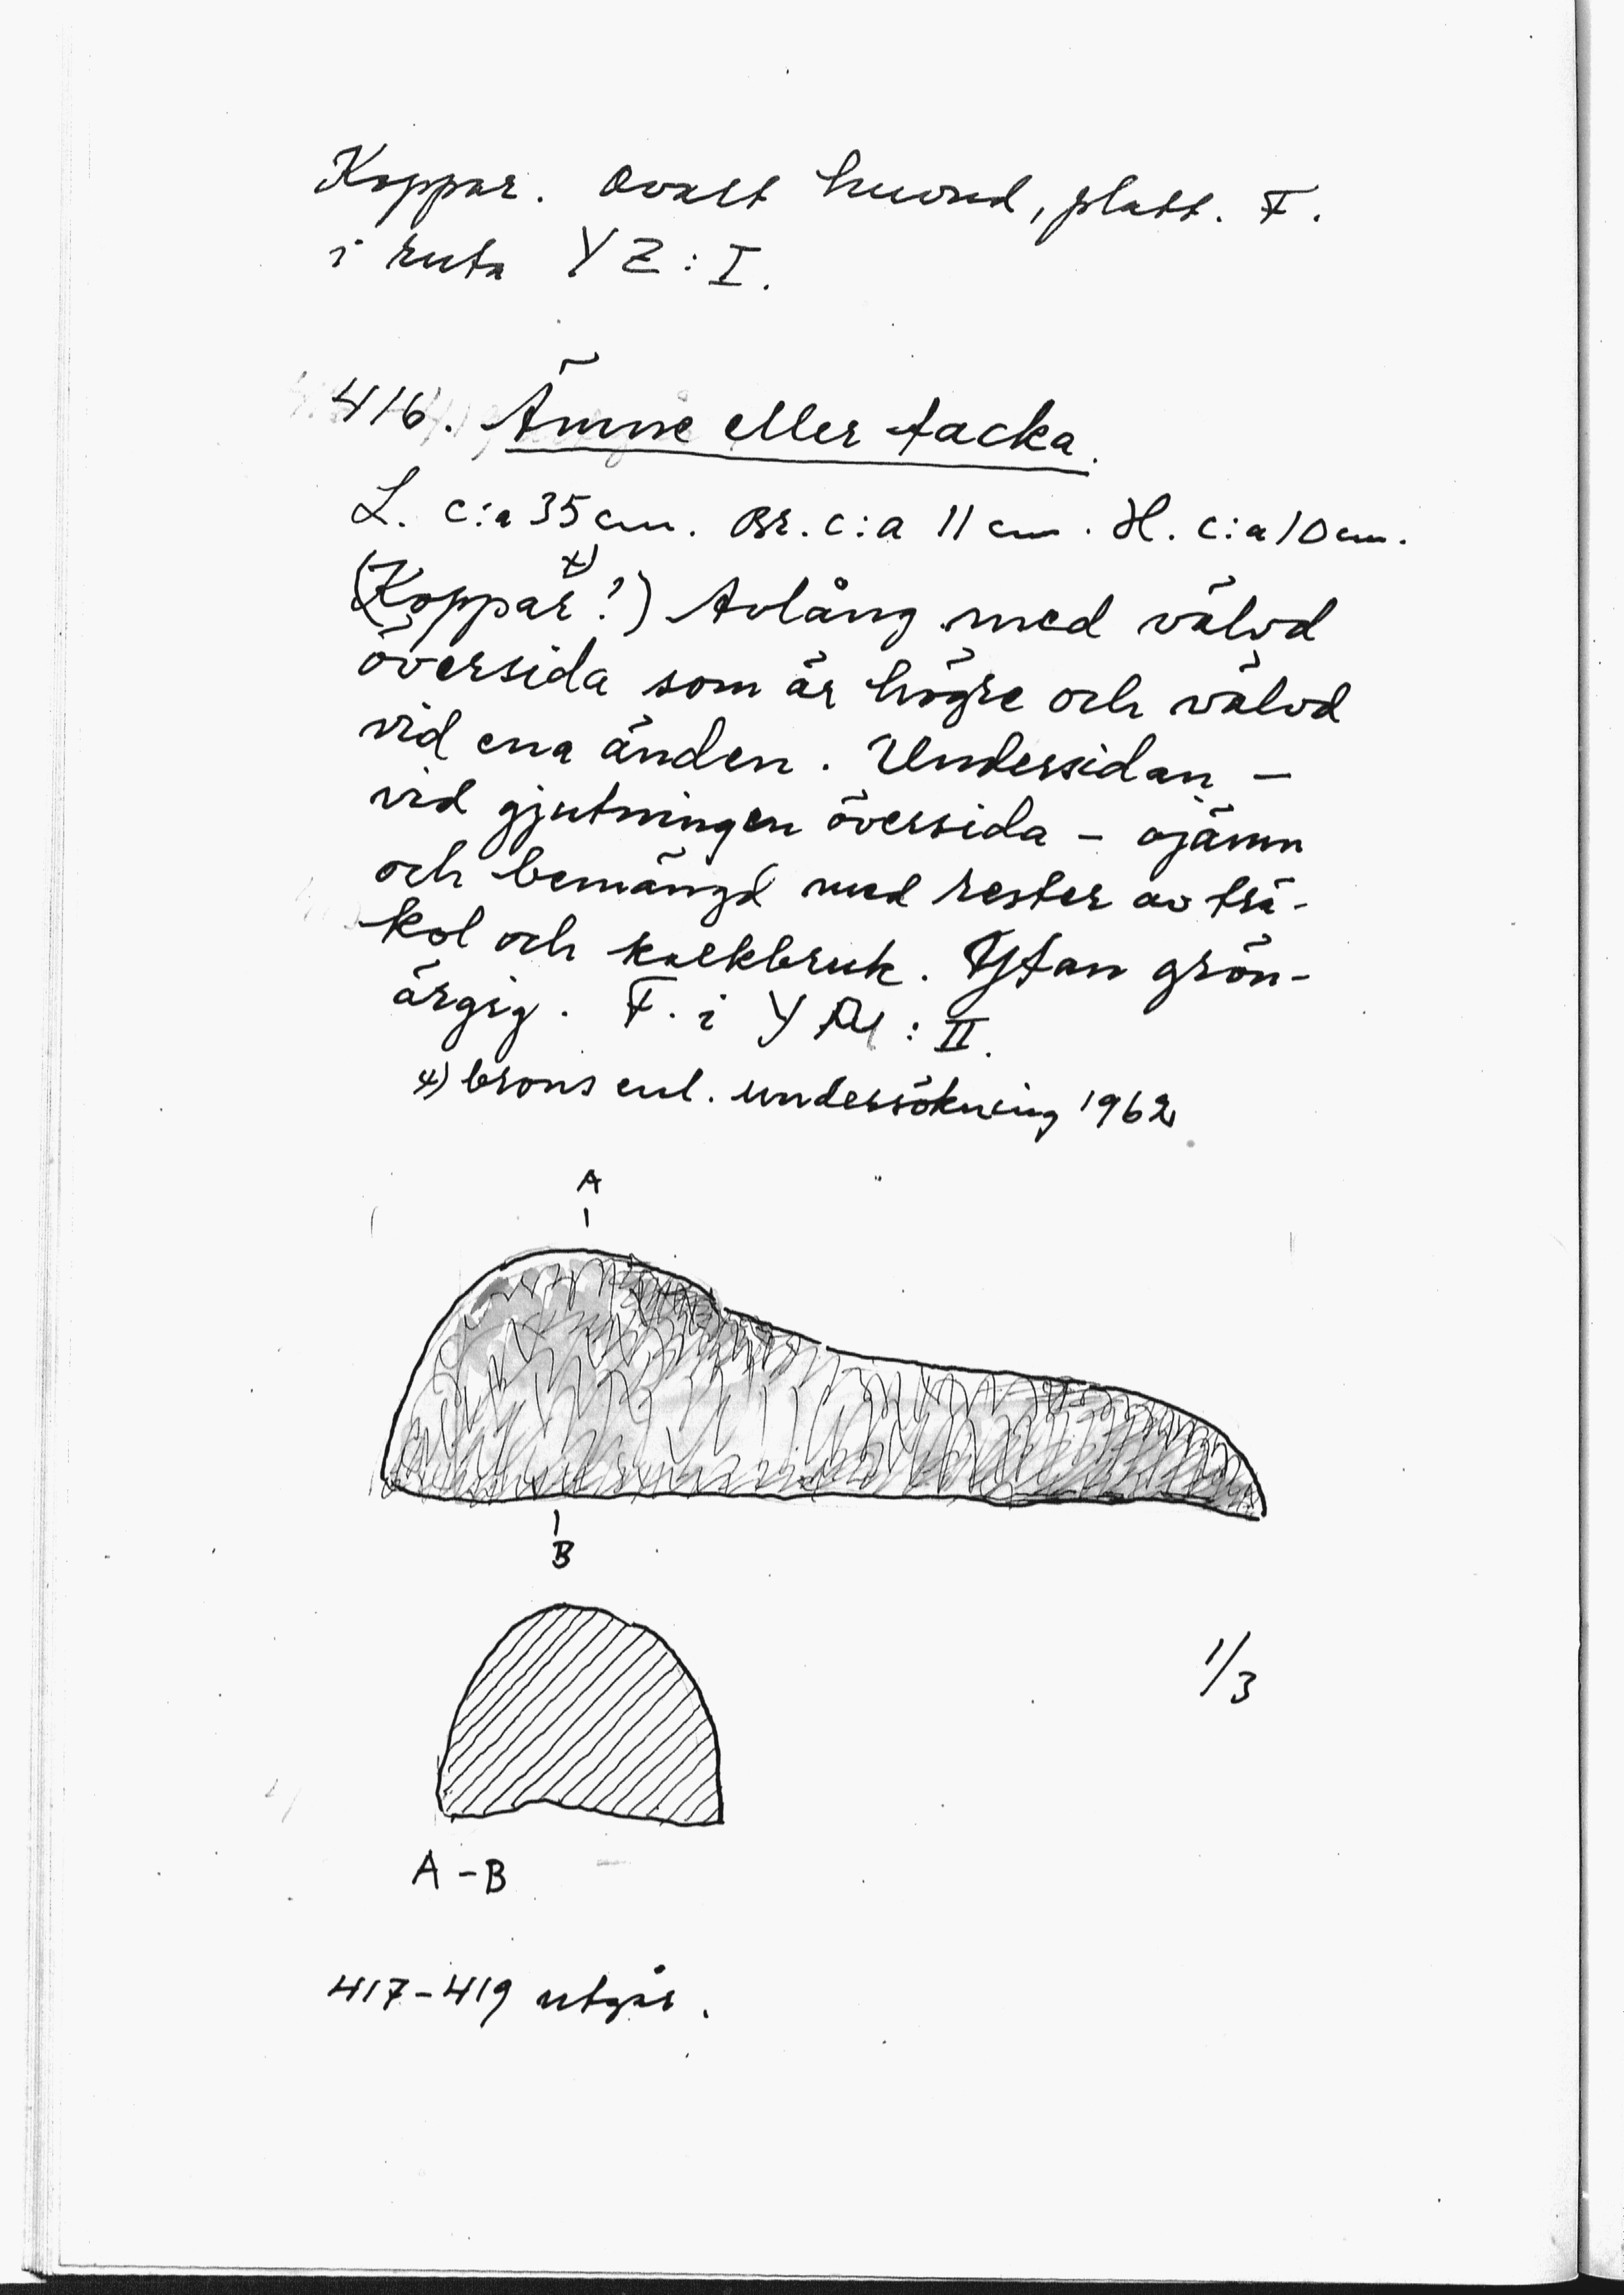 Koppar. Ovalt huvud, platt. F.
i ruta YZ: I.
416. Ämne eller tacka.
L. c:a 35 cm. Br. c:a 11 cm. H. c:a 10 cm.
(Koppar x) ?) Avlång med välvd
översida som är högre och välvd
vid ena änden. Undersidan –
vid gjutningen översida – ojämn
och bemängd med rester av trä-
kol och kalkbruk. Ytan grön-
ärgig. F. i Y : II.
x) brons enl. undersökning 1962
A
B
1/3
A – B
417–419 utgår.